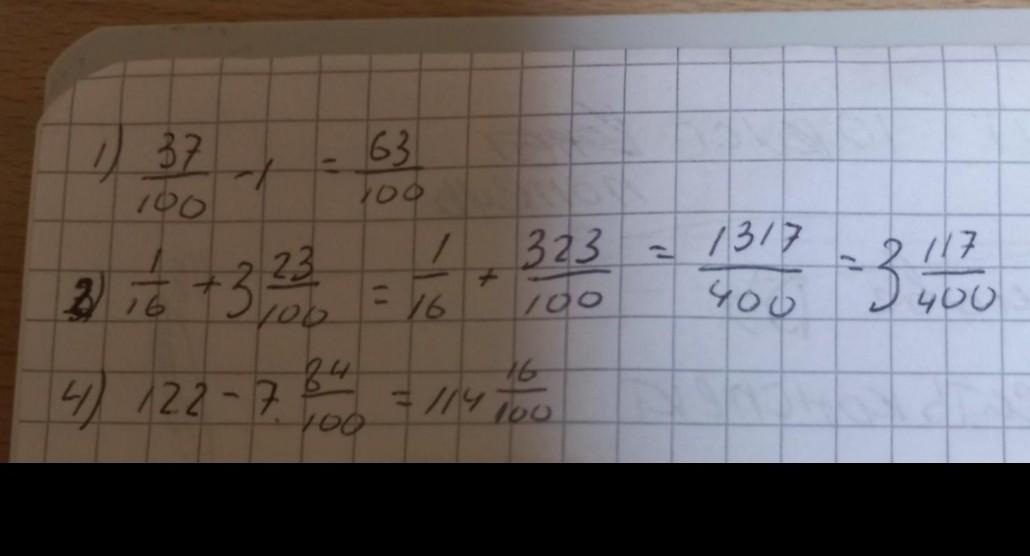 1) 37/100 - 1 = 63/100
2) 1/16 + 3 23/100 = 1/16 + 323/100 = 1317/400 = 3 117/400
4) 122 - 7 84/100 = 114 16/100